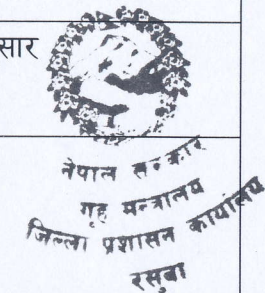 सार
नेपाल सरकार
गृह मन्त्रालय
जिल्ला प्रशासन कार्यालय
रसुवा